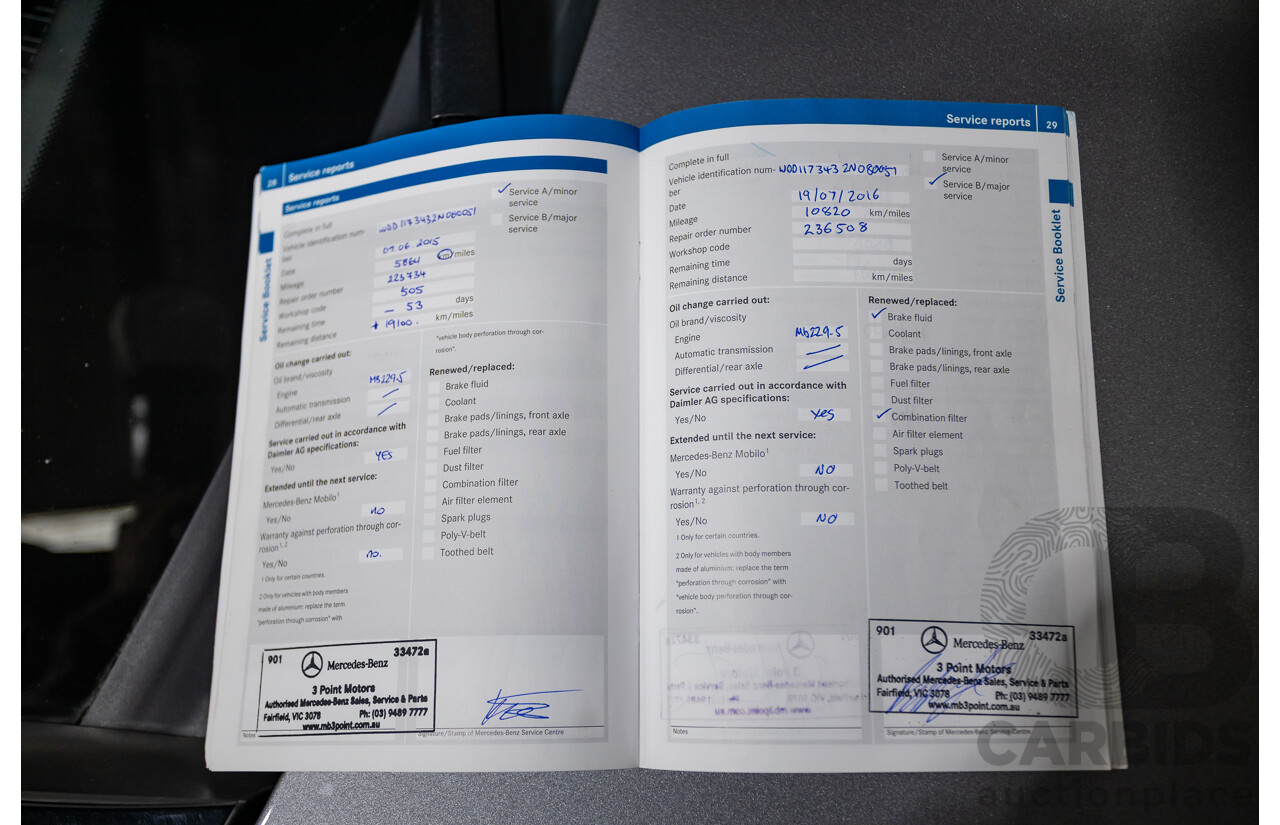 28 Service reports
Service reports
Service Booklet
Complete in full
Vehicle identification num-
ber
WDD1173432N080051
Date 09.06.2015
Mileage 5864 km/miles
Repair order number 223734
Workshop code 505
Remaining time – 53 days
Remaining distance + 19100. km/miles
✓ Service A/minor
service
Service B/major
service
Oil change carried out:
Oil brand/viscosity
Engine MB229.5
Automatic transmission
Differential/rear axle
Service carried out in accordance with
Daimler AG specifications:
Yes/No YES
Extended until the next service:
Mercedes-Benz Mobilo1
Yes/No no
Warranty against perforation through cor-
rosion1, 2
Yes/No no.
1 Only for certain countries.
2 Only for vehicles with body members
made of aluminium: replace the term
"perforation through corrosion" with
"vehicle body perforation through cor-
rosion".
Renewed/replaced:
Brake fluid
Coolant
Brake pads/linings, front axle
Brake pads/linings, rear axle
Fuel filter
Dust filter
Combination filter
Air filter element
Spark plugs
Poly-V-belt
Toothed belt
901 Mercedes-Benz 33472a
3 Point Motors
Authorised Mercedes-Benz Sales, Service & Parts
Fairfield, VIC 3078 Ph: (03) 9489 7777
www.mb3point.com.au
Notes
Signature/Stamp of Mercedes-Benz Service Centre
Service reports 29
Service Booklet
Complete in full
Vehicle identification num-
ber
WDD1173432N080051
Date 19/07/2016
Mileage 10820 km/miles
Repair order number 236508
Workshop code
Remaining time days
Remaining distance km/miles
Service A/minor
service
✓ Service B/major
service
Oil change carried out:
Oil brand/viscosity
Engine Mb229.5
Automatic transmission
Differential/rear axle
Service carried out in accordance with
Daimler AG specifications:
Yes/No Yes
Extended until the next service:
Mercedes-Benz Mobilo1
Yes/No NO
Warranty against perforation through cor-
rosion1, 2
Yes/No NO
1 Only for certain countries.
2 Only for vehicles with body members
made of aluminium: replace the term
"perforation through corrosion" with
"vehicle body perforation through cor-
rosion".
Renewed/replaced:
✓ Brake fluid
Coolant
Brake pads/linings, front axle
Brake pads/linings, rear axle
Fuel filter
Dust filter
✓ Combination filter
Air filter element
Spark plugs
Poly-V-belt
Toothed belt
901 Mercedes-Benz 33472a
3 Point Motors
Authorised Mercedes-Benz Sales, Service & Parts
Fairfield, VIC 3078 Ph: (03) 9489 7777
www.mb3point.com.au
Notes
Signature/Stamp of Mercedes-Benz Service Centre
CARBIDS
auctionplace